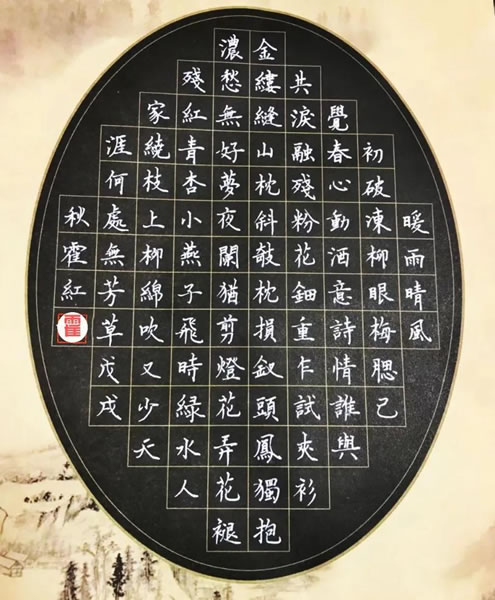 暖雨晴風
初破凍柳眼梅腮己
覺春心動酒意詩情誰與
共淚融殘粉花鈿重乍試夾衫
金縷縫山枕斜敧枕損釵頭鳳獨抱
濃愁無好夢夜闌猶剪燈花弄花褪
殘紅青杏小燕子飛時綠水人
家繞枝上柳綿吹又少天
涯何處無芳草戊戌
秋霍紅
霍